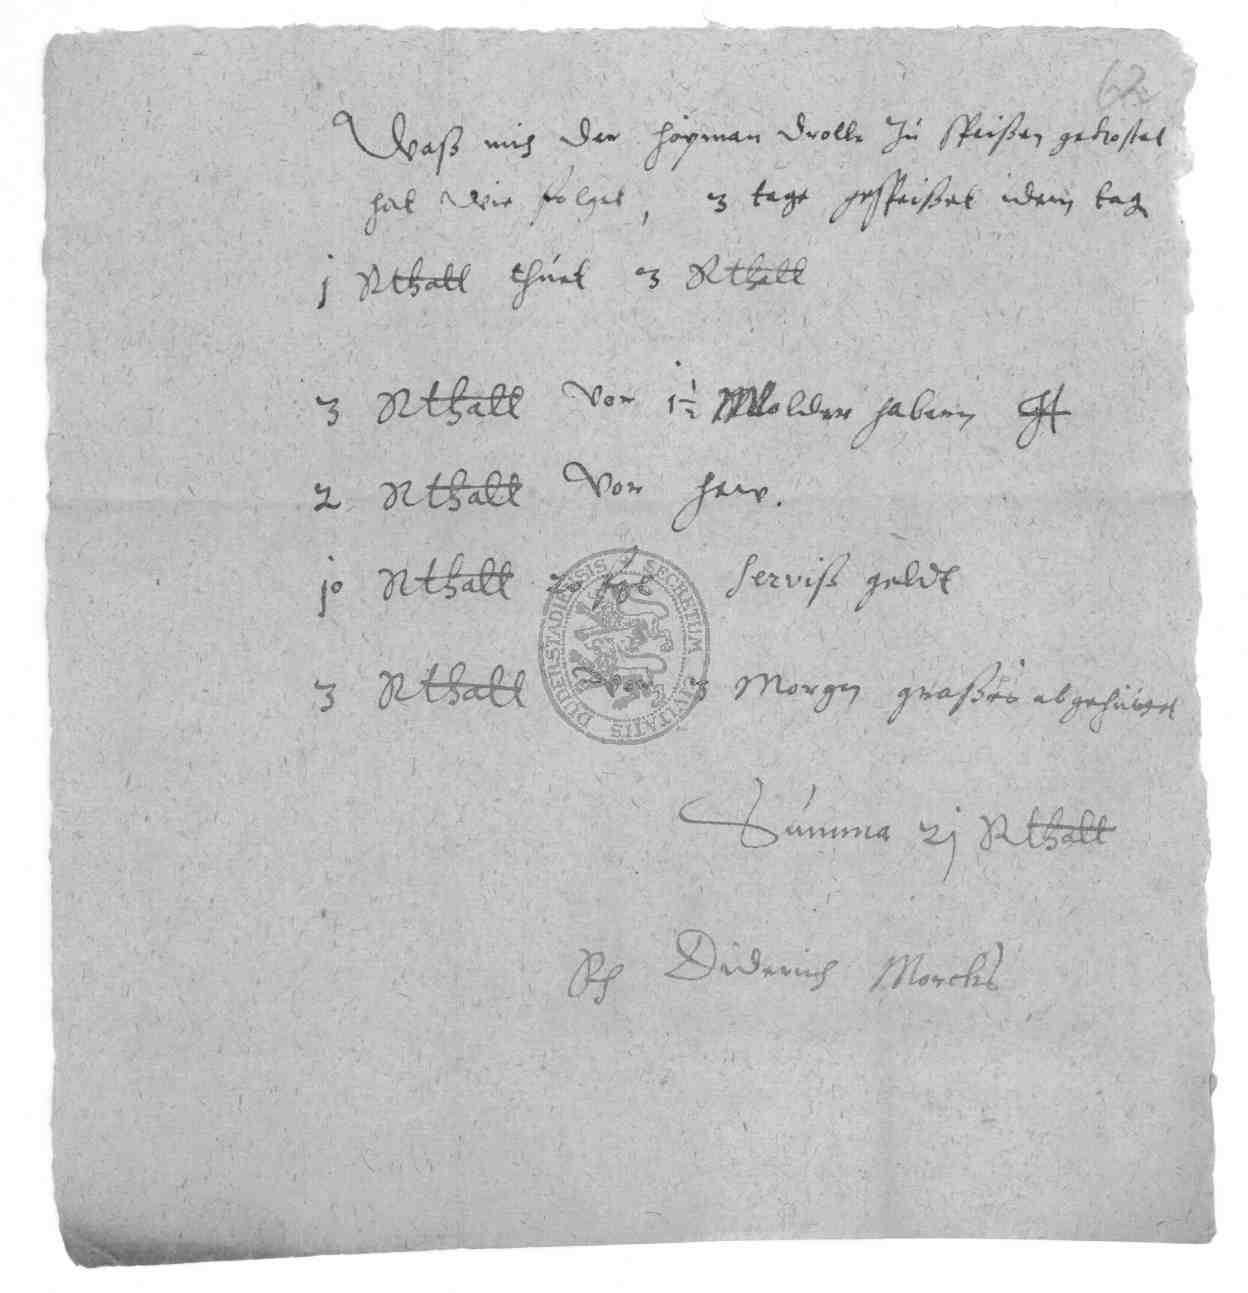 62
Waß mich der hoyman Drolle zu speißen gekostet
hat wie folget, 3 tage gespeißet idern tag
j Rthall thuet 3 Rthall
3 Rthall vor 1½ Molder habern
2 Rthall vor hew.
jo Rthall serviß geldt
3 Rthall vor 3 Morgen graßes abgehütet
Summa 2j Rthall
Diderich Morckes
SECRETUM CIVITATIS DUDERSTADIENSIS